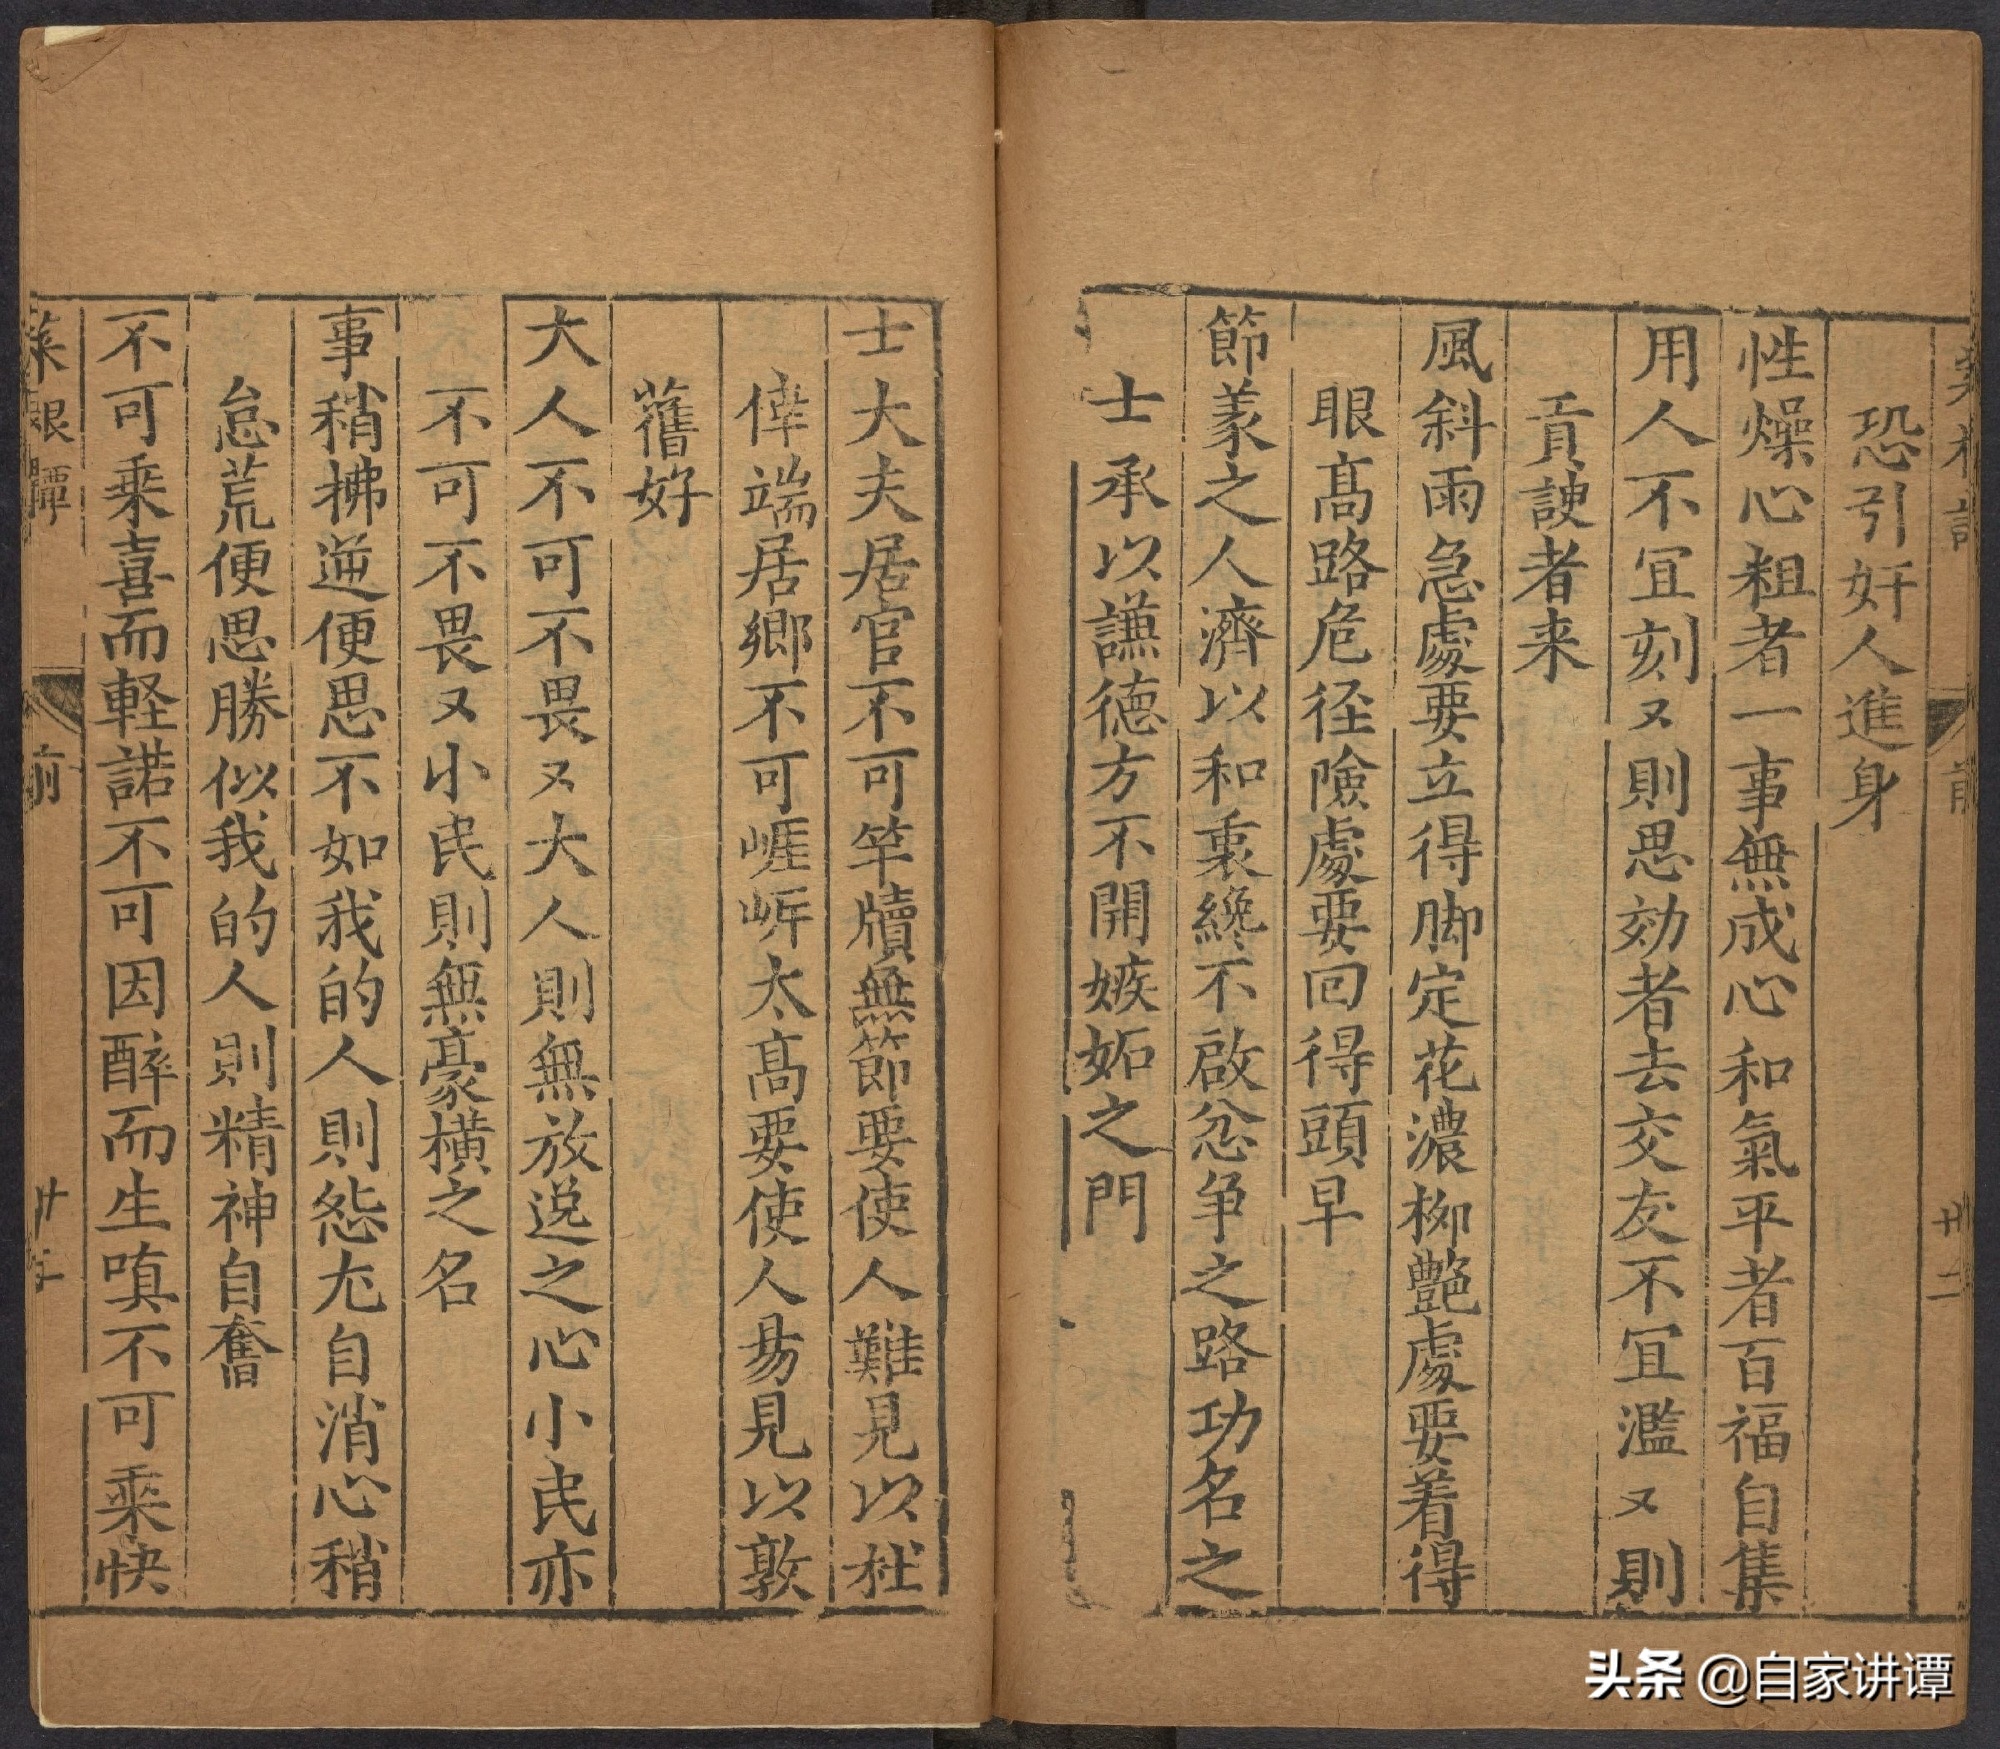 恐引奸人進身
性燥心粗者一事無成心和氣平者百福自集
用人不宜刻又則思効者去交友不宜濫又則
貢諛者来
風斜雨急處要立得脚定花濃栁艷處要着得
眼髙路危径險處要回得頭早
節義之人濟以和衷纔不啟忿争之路功名之
士承以謙德方不開嫉妬之門
士大夫居官不可竿牘無節要使人難見以杜
倖端居鄉不可崖岸太髙要使人易見以敦
舊好
大人不可不畏又大人則無放逸之心小民亦
不可不畏又小民則無豪橫之名
事稍拂逆便思不如我的人則怨尤自消心稍
怠荒便思勝似我的人則精神自奮
不可乗喜而軽諾不可因醉而生嗔不可乘快
菜根譚
前
头条 @自家讲谭